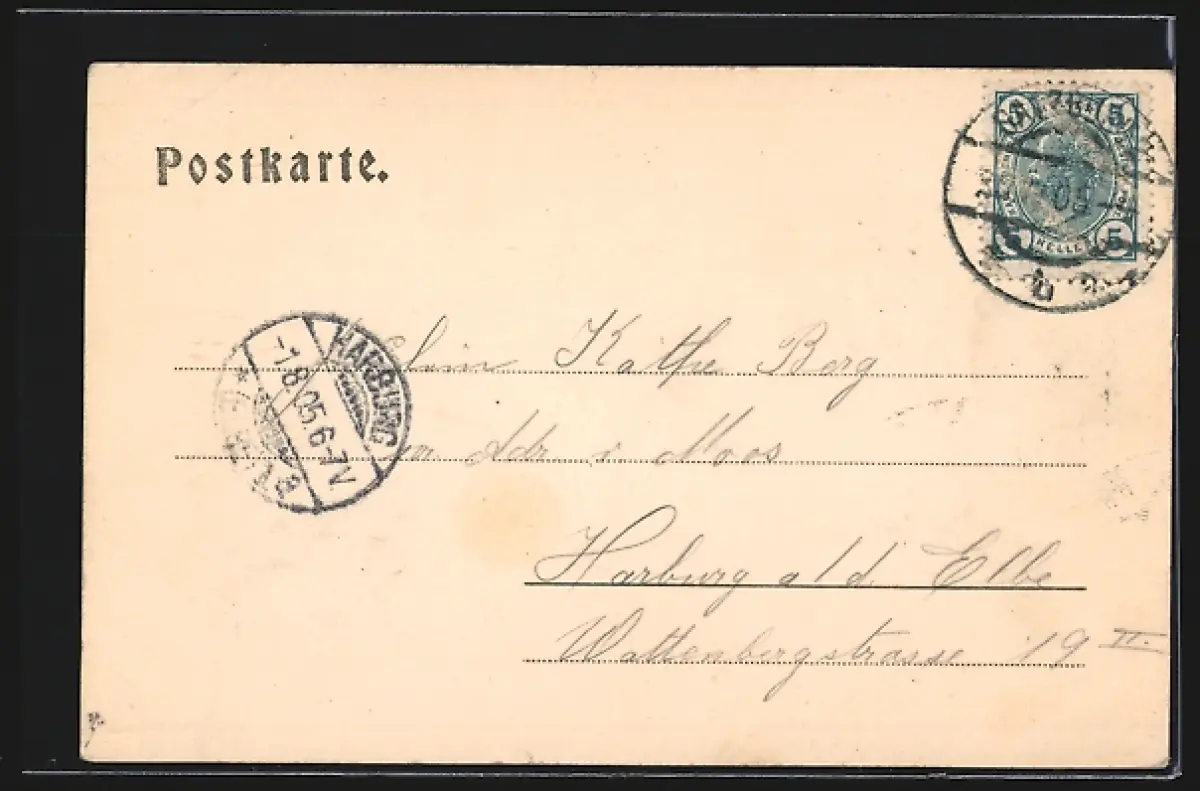 Postkarte.
5 5
5 HELLER 5
05
HARBURG
-1.8.05.6-7V
Käthe Berg
Adr. v. Moos
Harburg a/d. Elbe
Wattenbergstrasse 19 II.